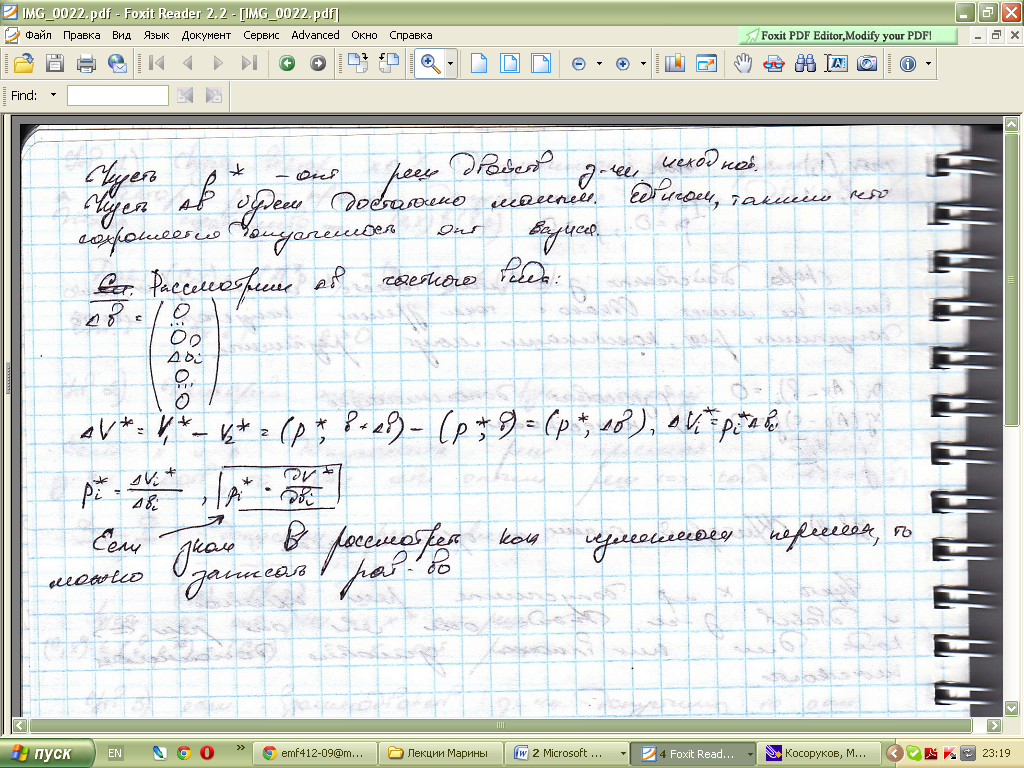 IMG_0022.pdf - Foxit Reader 2.2 - [IMG_0022.pdf]
Файл Правка Вид Язык Документ Сервис Advanced Окно Справка
Foxit PDF Editor,Modify your PDF!
Find:
Пусть p* - опт реш двойств з-чи исходной.
Пусть Δb будем достаточно малым. таким что
сохраняется допустимость опт базиса.
Рассмотрим Δb частного вида:
Δb = (0 ... 0 Δbi 0 ... 0)
ΔV* = V1* - V2* = (p*, b+Δb) - (p*, b) = (p*, Δb), ΔVi* = pi* Δbi
pi* = ΔVi*/Δbi , pi* = ∂V*/∂bi
Если знак B рассмотреть как перемен, то
можно записать рав-во
пуск EN » emf412-09@m... Лекции Марины 2 Microsoft ... 4 Foxit Read... Косоруков, М... 23:19